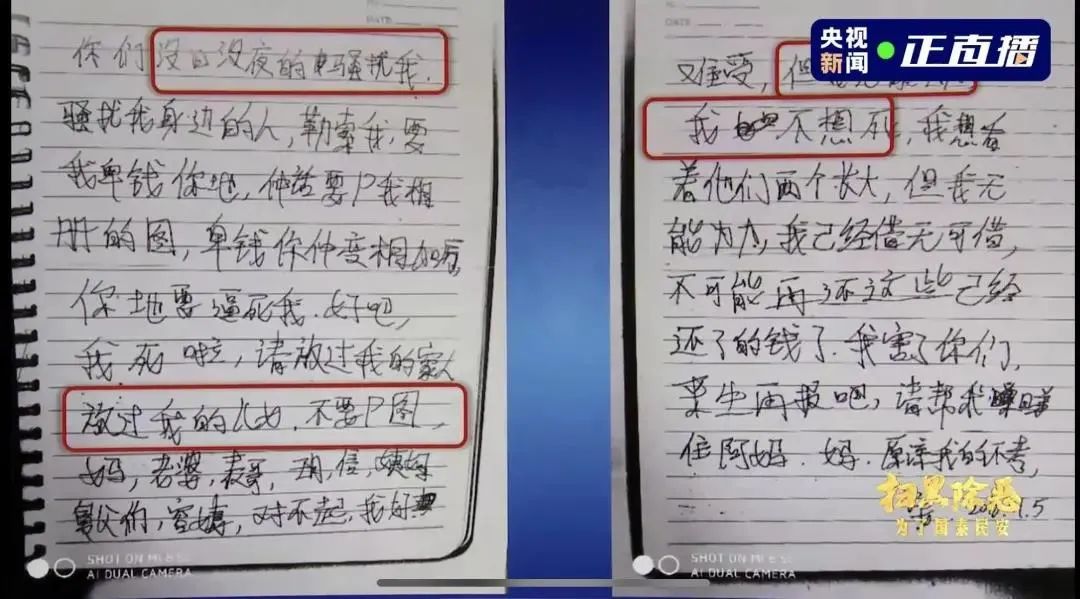 你们没日没夜的骚扰我.
骚扰我身边的人,勒索我,要
我畀钱你地,仲话要P我相
册的图,畀钱你仲变相加
你地要逼死我.好吧,
我死啦,请放过我的家人
放过我的儿女.不要P图,
妈,老婆,表哥,
舅父们,对不起,我好
又难受,但
我不想死,我想看
着他们两个长大,但我无
能为力,我已经借无可借,
不可能再还这些已经
还了的钱了.我害了你们,
来生再报吧,请帮我
住阿妈.妈.原谅我的不孝,
1.5
央视新闻 正直播
扫黑除恶
为了国泰民安
SHOT ON MI 8 SE
AI DUAL CAMERA
SHOT ON MI 8 SE
AI DUAL CAMERA